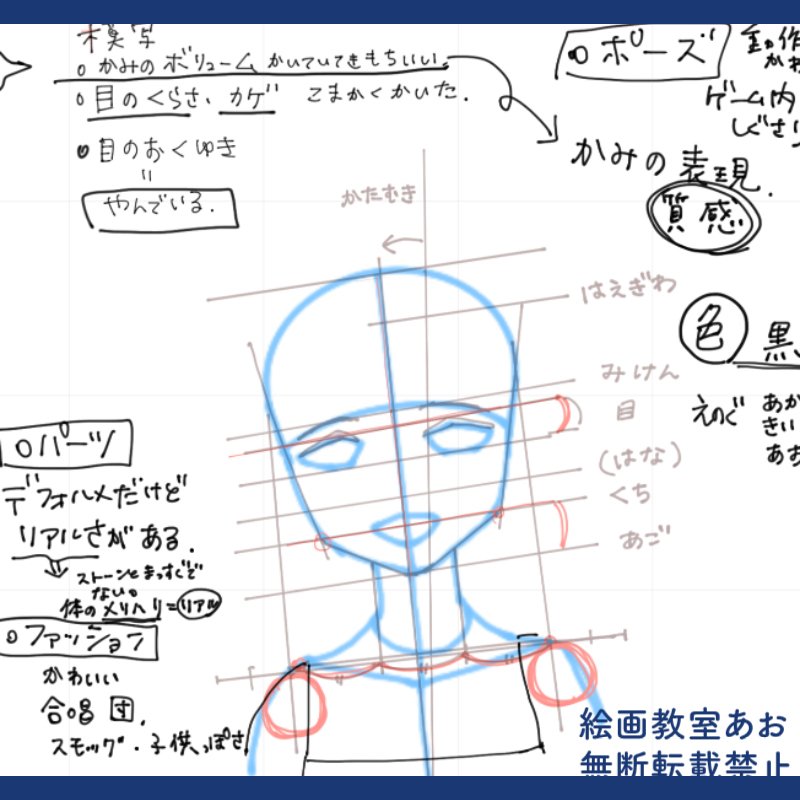 模写
○かみのボリュームかいていてきもちいい.
○目のくらさ、カゲ こまかくかいた.
●目のおくゆき
"
やんでいる.
かみの表現.
質感
●ポーズ
動作
かわ
ゲーム内
しぐさ
色 黒
えのぐ
あか
きい
あお
かたむき
はえぎわ
みけん
目
(はな)
くち
あご
○パーツ
デフォルメだけど
リアルさがある.
ストーンとまっすぐで
ない。
体のメリハリ=リアル
○ファッション
かわいい
合唱団.
スモック・子供っぽさ
絵画教室あお
無断転載禁止